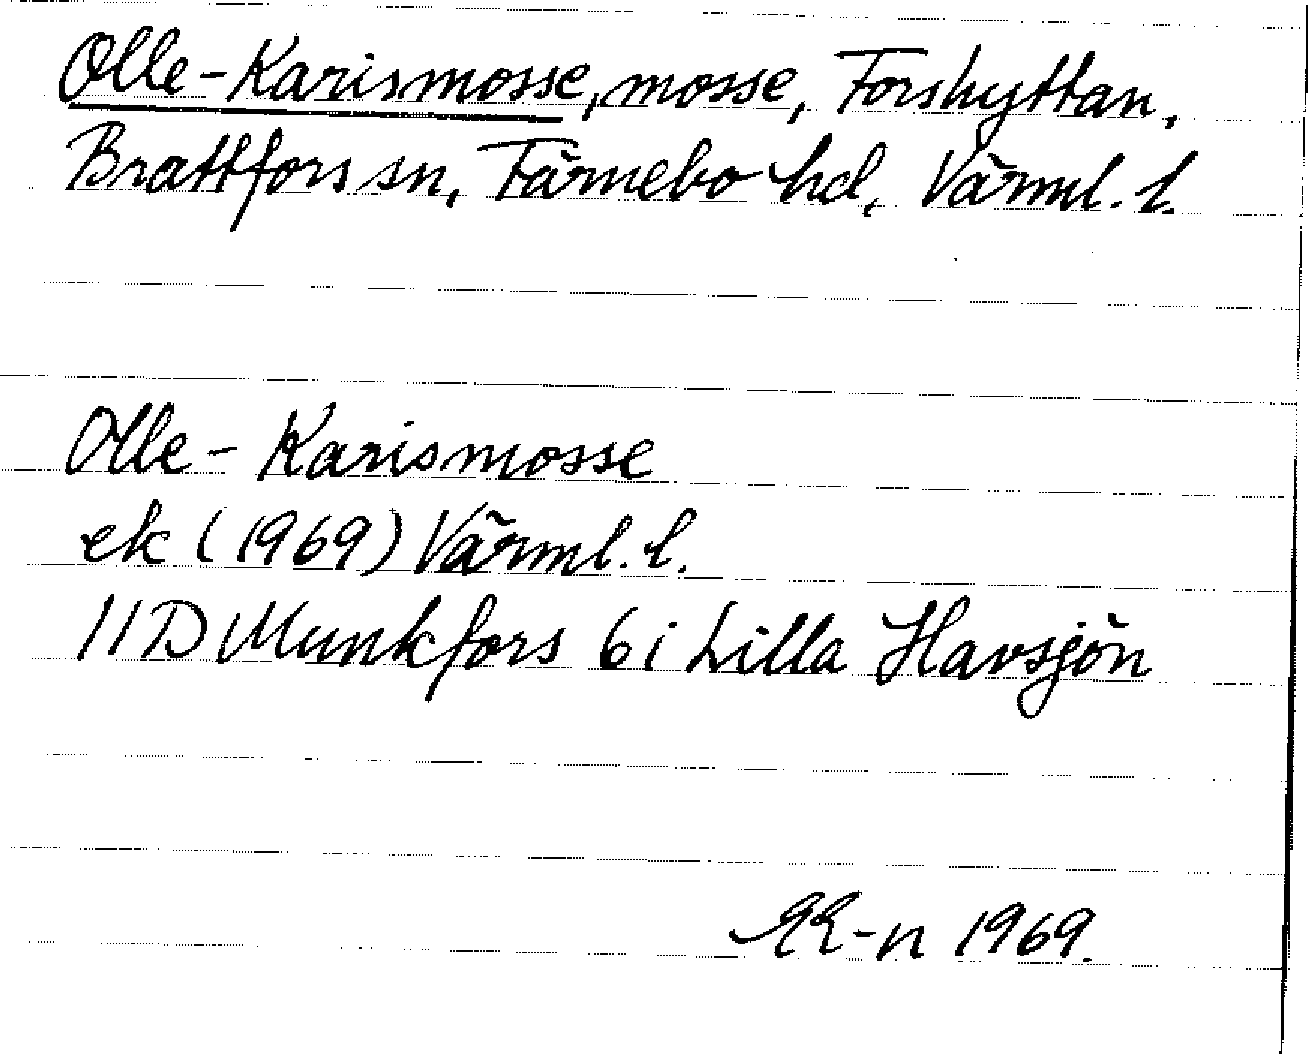 Olle-Karismosse, mosse, Forshyttan,
Brattfors sn, Färnebo hd, Värml. l.
Olle-Karismosse
ek (1969) Värml. l.
11D Munkfors 6 i Lilla Havsjön
1969.